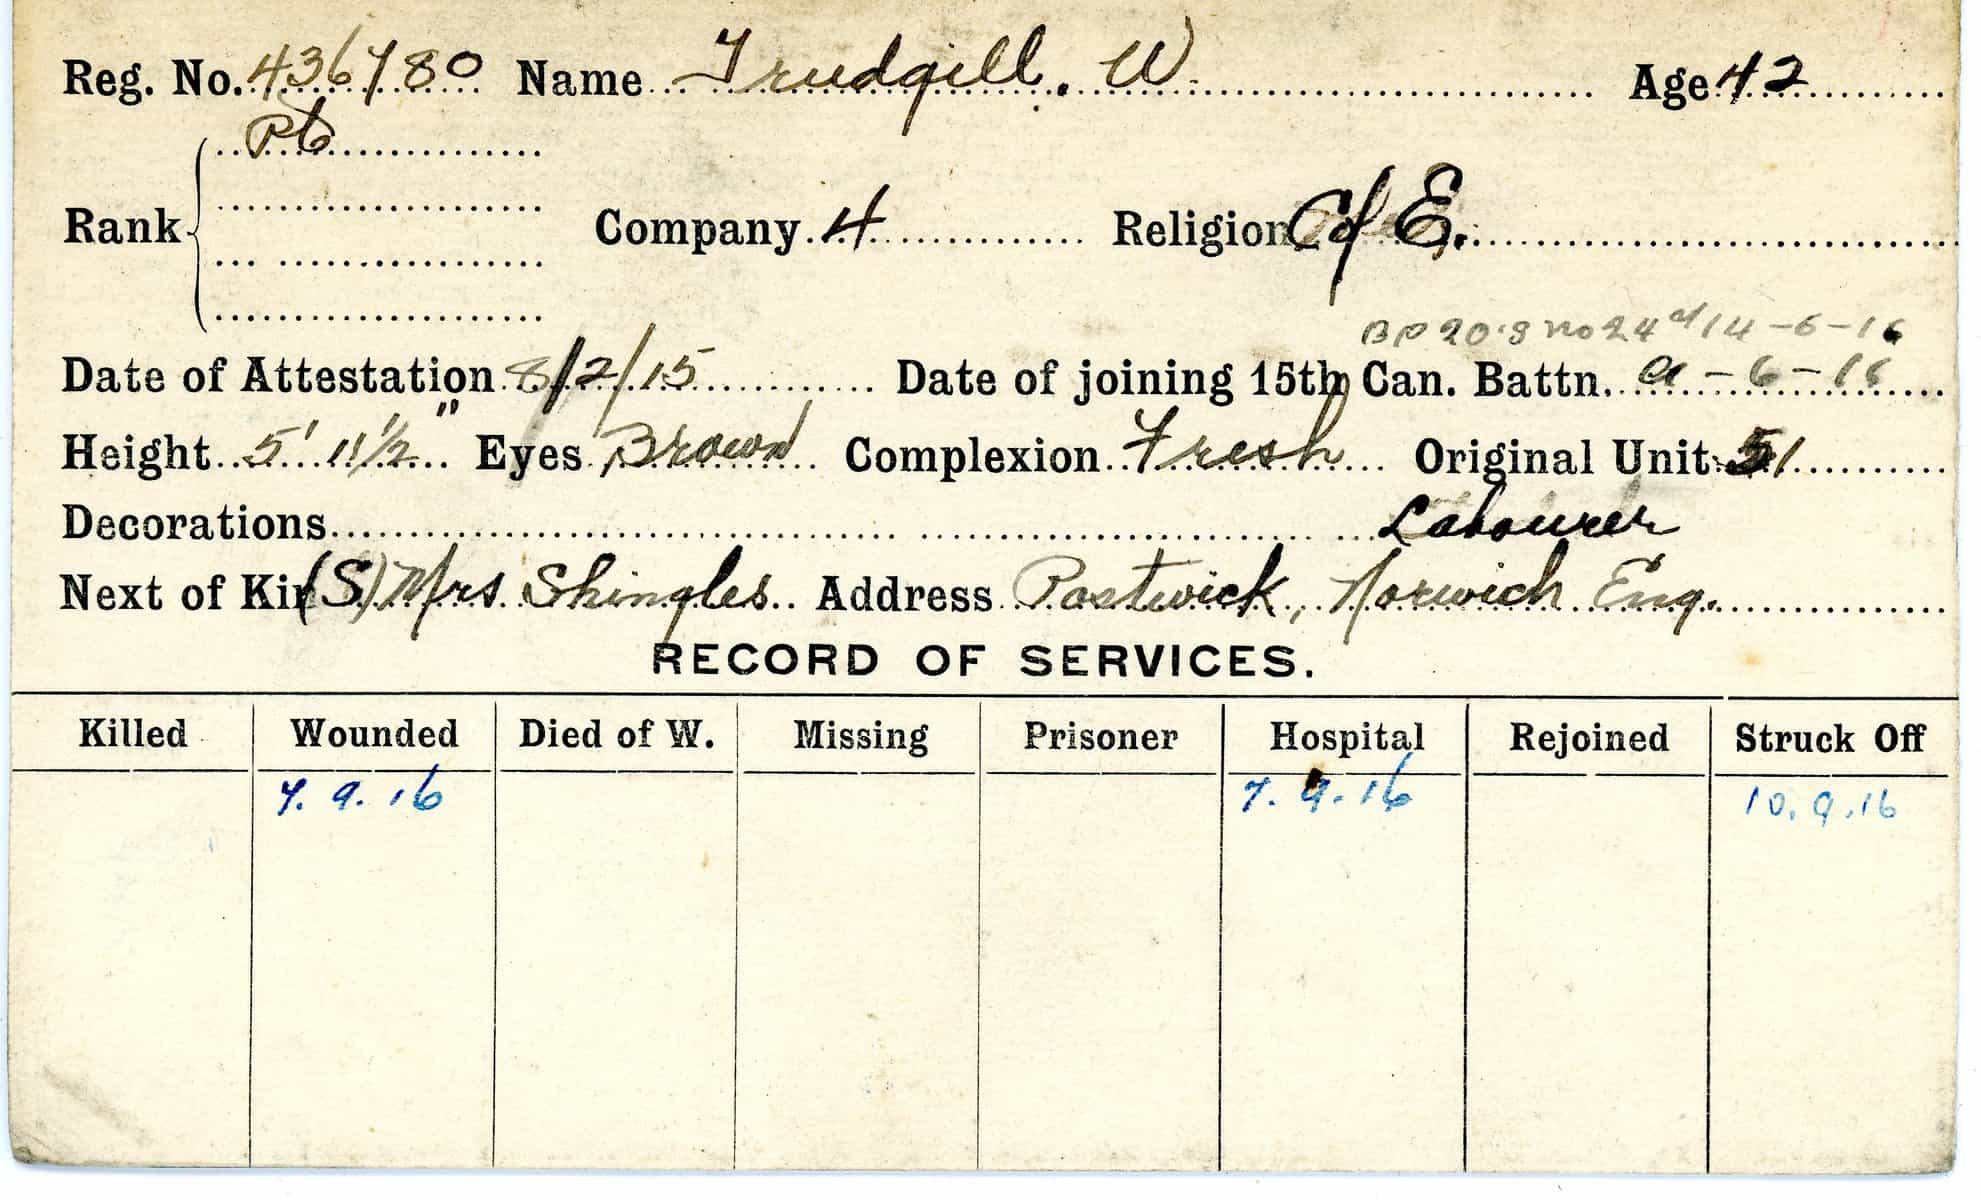 Reg. No. 436780 Name Trudgill. W. Age 42
Pte
Rank Company 4 Religion C of E.
14-6-16
Date of Attestation 8/2/15 Date of joining 15th Can. Battn. 9-6-16
Height 5' 11½" Eyes Brown Complexion Fresh Original Unit 51
Decorations Labourer
Next of Kin (S) Mrs Shingles Address Postwick, Norwich Eng.
RECORD OF SERVICES.
Killed Wounded Died of W. Missing Prisoner Hospital Rejoined Struck Off
7.9.16 7.9.16 10.9.16